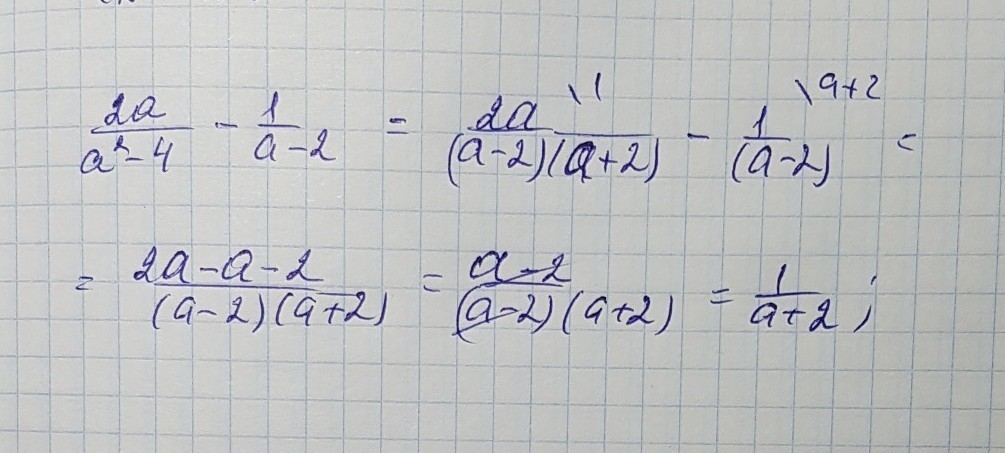 2a/(a²-4) - 1/(a-2) = 2a\1/((a-2)(a+2)) - 1\a+2/(a-2) =
= (2a-a-2)/((a-2)(a+2)) = (a-2)/((a-2)(a+2)) = 1/(a+2);